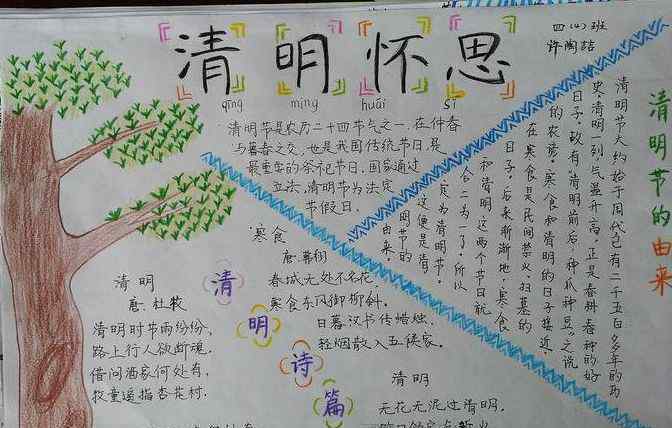 清明怀思
qīng míng huái sī
四(4)班
许陶喆
清明节是农历二十四节气之一,在仲春
与暮春之交,也是我国传统节日,是
最重要的祭祀节日。国家通过
立法,清明节为法定
节假日。
清明节的由来
清明节大约始于周代已有二千五百多年的历
史,清明一到气温升高,正是春耕春种的好
日子,故有“清明前后,种瓜种豆”之说
的农谚。寒食和清明的日子接近,
在寒食是民间禁火扫墓的
日子,后来渐渐地,寒食
和清明这两个节日就
合二为一了,所以
定为清明节。
这便是清
明节的
由来。
清明诗篇
清明
唐:杜牧
清明时节雨纷纷,
路上行人欲断魂。
借问酒家何处有,
牧童遥指杏花村.
寒食
唐:韩翃
春城无处不飞花,
寒食东风御柳斜。
日暮汉书传蜡烛,
轻烟散入五陵家。
清明
无花无泥过清明,